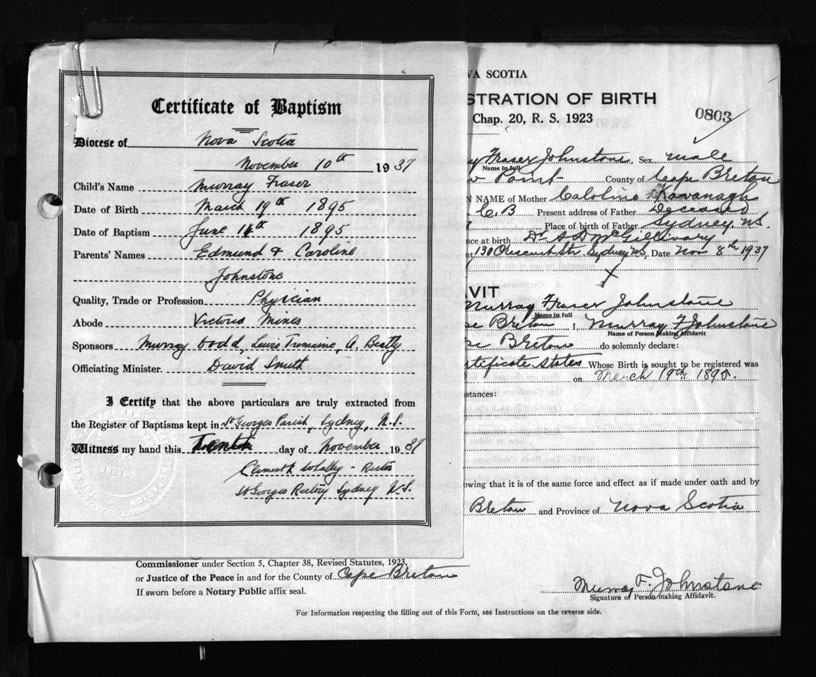 Certificate of Baptism
Diocese of Nova Scotia
November 10th 1937
Child's Name Murray Fraser
Date of Birth March 19th 1895
Date of Baptism June 16th 1895
Parents' Names Edmund & Caroline
Johnstone
Quality, Trade or Profession Physician
Abode Victoria Mines
Sponsors Murray Dodd, Lewis Tremaine, A. Beatty
Officiating Minister David Smith
I Certify that the above particulars are truly extracted from
the Register of Baptisms kept in St Georges Parish, Sydney, N.S.
Witness my hand this Tenth day of November 1937
Rector
St Georges Rectory Sydney N.S.
VA SCOTIA
STRATION OF BIRTH
Chap. 20, R. S. 1923
0803
y Fraser Johnstone, Sex male
Name in full
Point County of Cape Breton
N NAME of Mother Caroline Kavanagh
C.B Present address of Father Deceased
Place of birth of Father Sydney N.S.
nce at birth Dr
Sydney N.S, Date Nov 8th 1937
VIT
Murray Fraser Johnstone
Name in full
pe Breton I, Murray F Johnstone
Name of Person Making Affidavit
pe Breton do solemnly declare:
rtificate states Whose Birth is sought to be registered was
on March 19th 1895.
stances:
owing that it is of the same force and effect as if made under oath and by
Breton and Province of Nova Scotia
Commissioner under Section 5, Chapter 38, Revised Statutes, 1923,
or Justice of the Peace in and for the County of Cape Breton
If sworn before a Notary Public affix seal.
Murray F. Johnstone
Signature of Person making Affidavit.
For Information respecting the filling out of this Form, see Instructions on the reverse side.